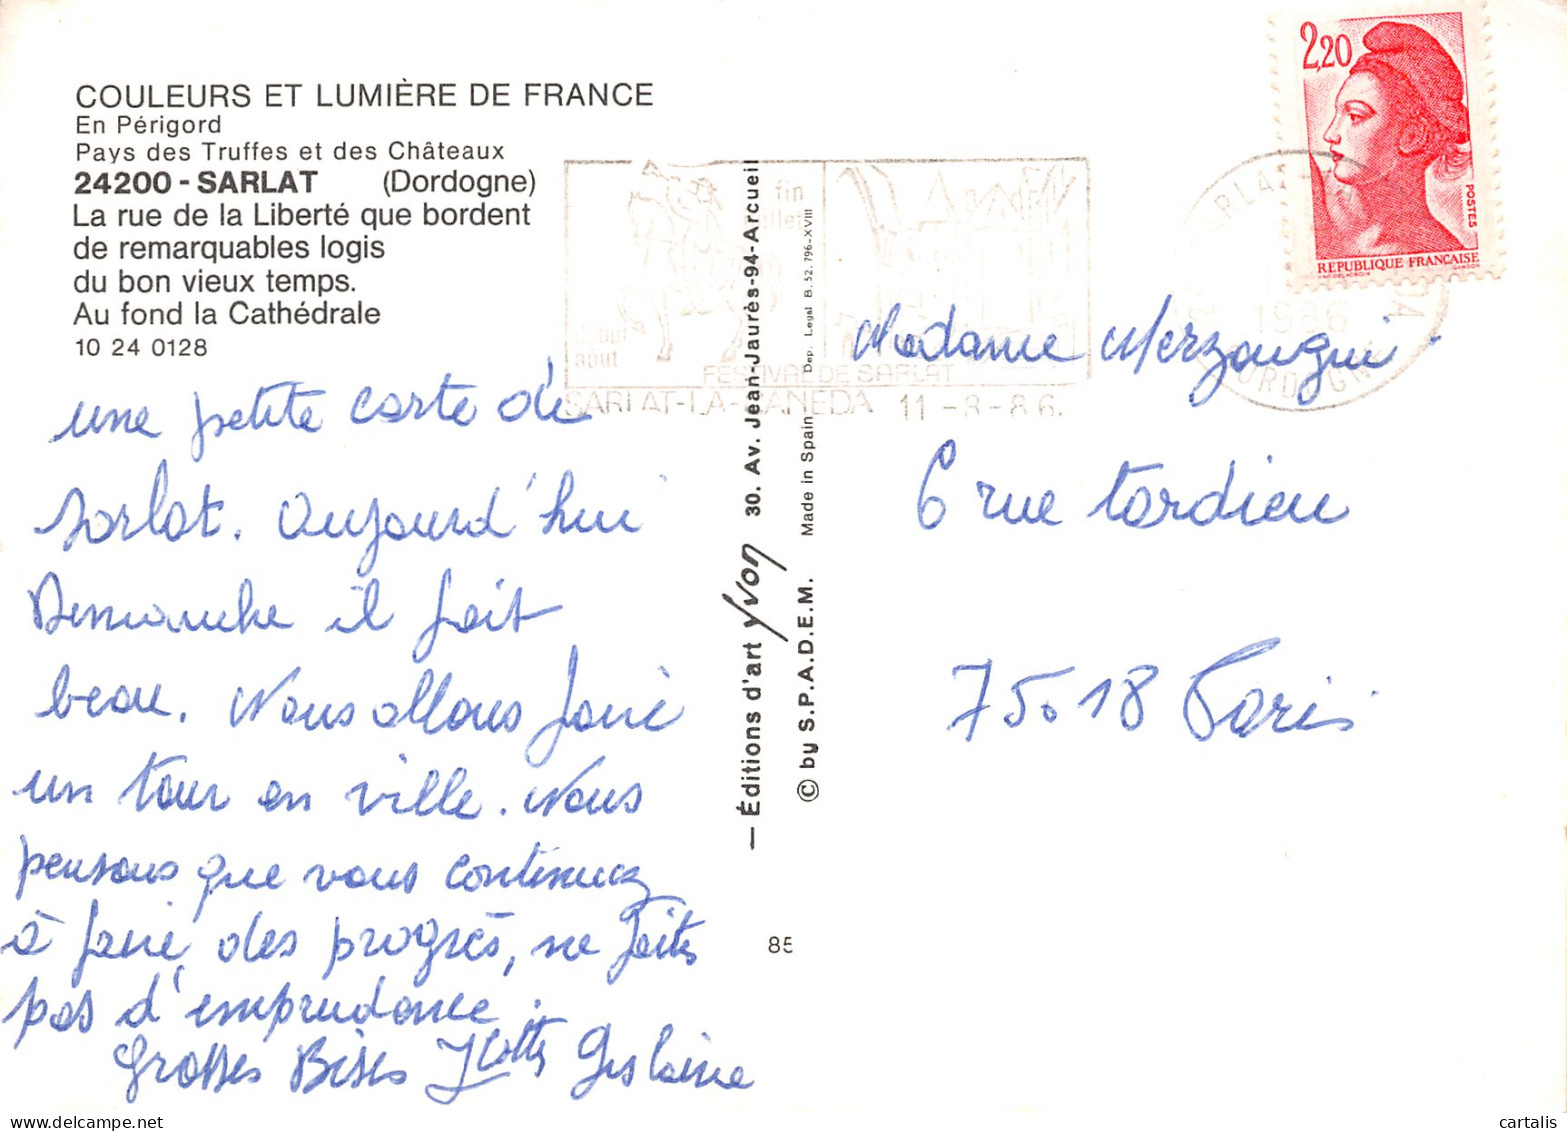 COULEURS ET LUMIÈRE DE FRANCE
En Périgord
Pays des Truffes et des Châteaux
24200 - SARLAT (Dordogne)
La rue de la Liberté que bordent
de remarquables logis
du bon vieux temps.
Au fond la Cathédrale
10 24 0128
une petite carte de
Sarlat. Aujourd'hui
Dimanche il fait
beau. Nous allons faire
un tour en ville. Nous
pensons que vous continuez
à faire des progrès, ne faites
pas d'imprudence.
Grosses Bises Gislaine
— Éditions d'art Yvon 30. Av. Jean-Jaurès-94-Arcueil
© by S.P.A.D.E.M. Made in Spain Dep. Legal B. 52. 796-XVIII
85
fin
juillet
début
août
FESTIVAL DE SARLAT
SARLAT-LA-CANEDA 11-8-86.
1986
DORDOGNE
2,20
POSTES
REPUBLIQUE FRANÇAISE
Madame Merzougui
6 rue tardieu
75018 Paris
delcampe.net
cartalis